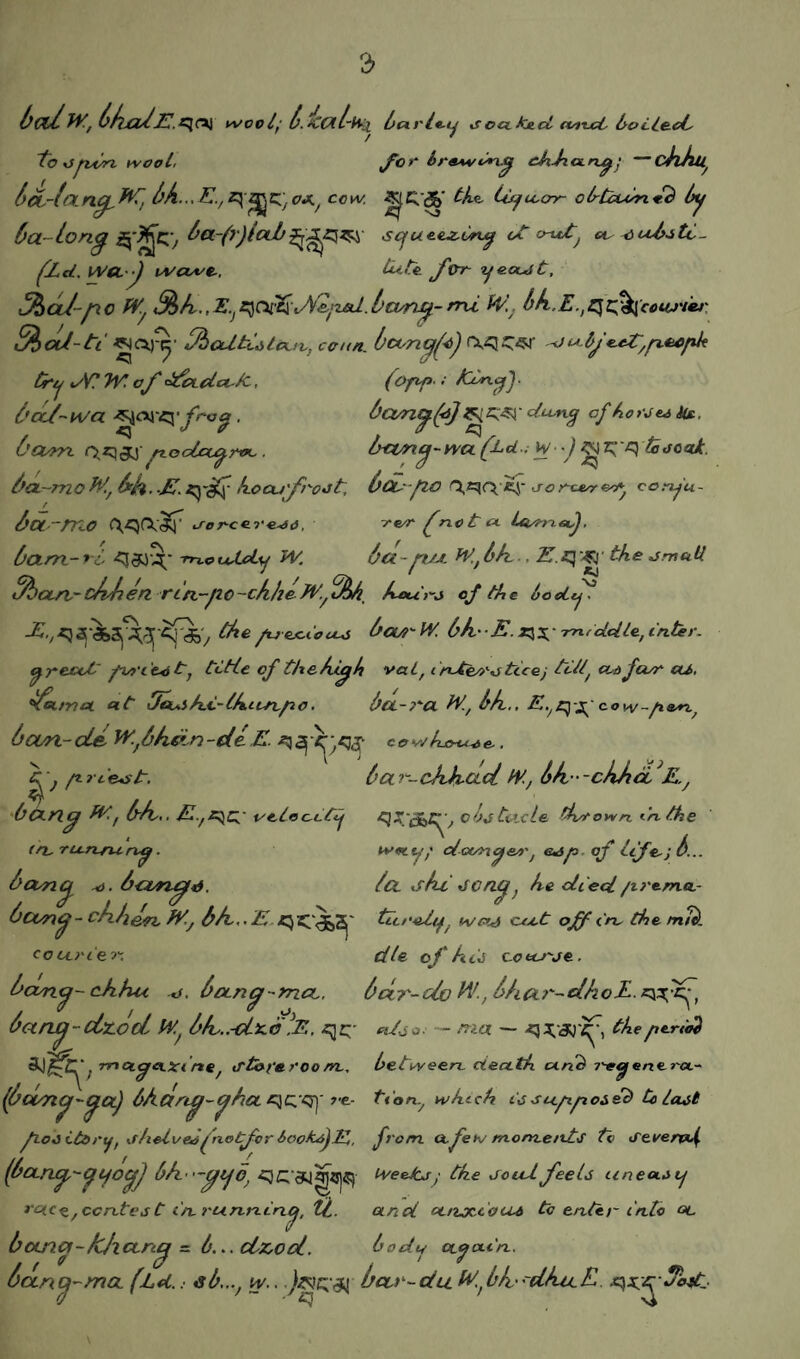 3
bal W., bhalE. བལ wool; b.
to spun wool,
ba-lang W., bh... E., བ་གླང་, ox, cow.
ba-long, ba-(r)lab
(Ld. wa··) wave.
Bal-po W., Bh.., E., བལ་པོ་ Nepal.
Bal-ti སྦལ་ཏི་ Baltistan, coun.
try N.W. of Ladak.
bal-wa སྦལ་བ་ frog.
bam podagra.
ba-mo W., bh. .E. བ་མོ་ hoarfrost,
ba-mo sorceress,
bam-ri mouldy W.
Ban-chhen rin-po-chhe W., Bh.
E., the precious
great priest, title of the high
lama at Tashi-lhunpo.
ban-de W., bhan-de E. བན་དེ་,
priest.
bang W., bh.. E., བང་ velocity
in running.
bang s. bangs.
bang-chhen W., bh.. E བང་ཆེན་
courier.
bang-chhu s. bang-ma.
bang-dzod W., bh..-dzo E. བང་
མཛོད་, magazine, storeroom.
(bang-ga) bhang-gha བང་ག re-
pository, shelves (not for books) E,
(bang-gyog) bh··-gyo,
race, contest in running, U.
bang-khang = b... dzod.
bang-ma (Ld.: sb..., w.. .) སྦང་མ
barley soaked and boiled
for brewing chhang; — chhu,
སྦང་ཆུ་ the liquor obtained by
squeezing it out, a substi-
tute for yeast,
bang-mi W., bh.E.,
bangs འབངས་ subject, people
(opp.: king).
bangs dung of horses &c.
bang-wa (Ld.: w··) སྦང་བ to soak.
ba-po sorcerer, conju-
rer (not a lama).
ba-pu W., bh.. E. བ་སྤུ་ the small
hairs of the body.
bar W. bh··E. བར་ middle, inter-
val, interstice; till, as far as.
ba-ra W., bh.. E., བ་ར་ cow-pen,
cowhouse.
bar-chhad W., bh··-chhad E.,
བར་ཆད་, obstacle thrown in the
way; danger, esp. of life; b...
la shi song, he died prema-
turely, was cut off in the mid-
dle of his course.
bar-do W., bhar-dho E. བར་དོ་,
also — ma — བར་མ་དོ་, the period
between death and regenera-
tion, which is supposed to last
from a few moments to several
weeks; the soul feels uneasy
and anxious to enter into a
body again.
bar-du W., bh.-dhu E. བར་དུ་ Post.